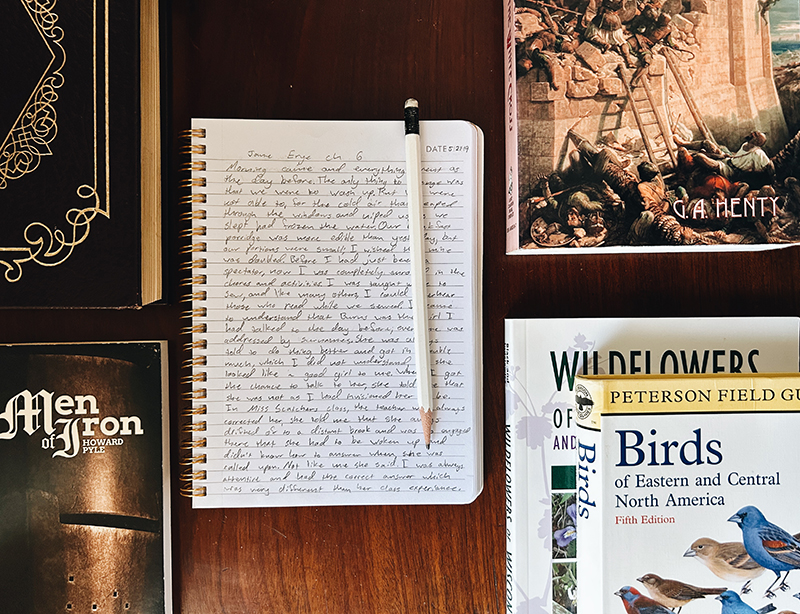 Men
of Iron
HOWARD
PYLE
DATE
Jane Erye ch 6
Morning came and everything as
the day before. The only thing to was
that we were to wash up. But
not able to, for the cold air that
through the windows and wiped we
slept had frozen the water. Our
porridge was more edible than but
our portions were small I wished the
was doubled. Before I had just
spectator, now I was completely in the
chores and activities I was taught to
sew, and like many others, I could
those who read while we sewed. I
to understand that Burns was the I
had talked to the day before, was
addressed by surnames. She was
told to do thing better and got in
much, which I did not understand she
looked like a good girl to me. When I got
the chance to talk to her she told that
she was not as I had invisioned her be.
In Miss Scatchers class, the teacher always
corrected her she told me that she
drifted of to a distant brook and was
there that she had to be woken up
didn't know how to answer when she was
called upon. Not like me she said. I was always
attentive and had the correct answer which
was very different then her class experience.
G.A. HENTY
WILDFLOWERS
OF
AND
WILDFLOWERS OF
PETERSON FIELD
Birds
Birds
of Eastern and Central
North America
Fifth Edition